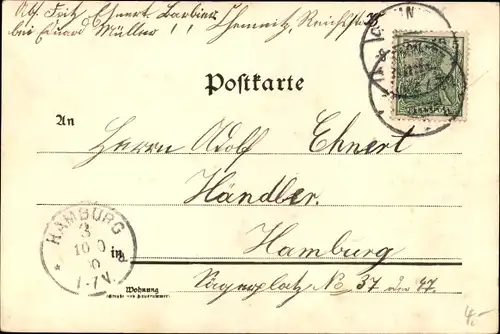 Abs. Fritz Ehnert. Barbier, Chemnitz, Reichsstr. 
bei Eduard Müller
Postkarte
An
Herrn Adolf Ehnert
Händler.
in Hamburg
Wohnung
(Straße und Hausnummer)
No. 37
HAMBURG
3
10 0
1-7V.
4,-